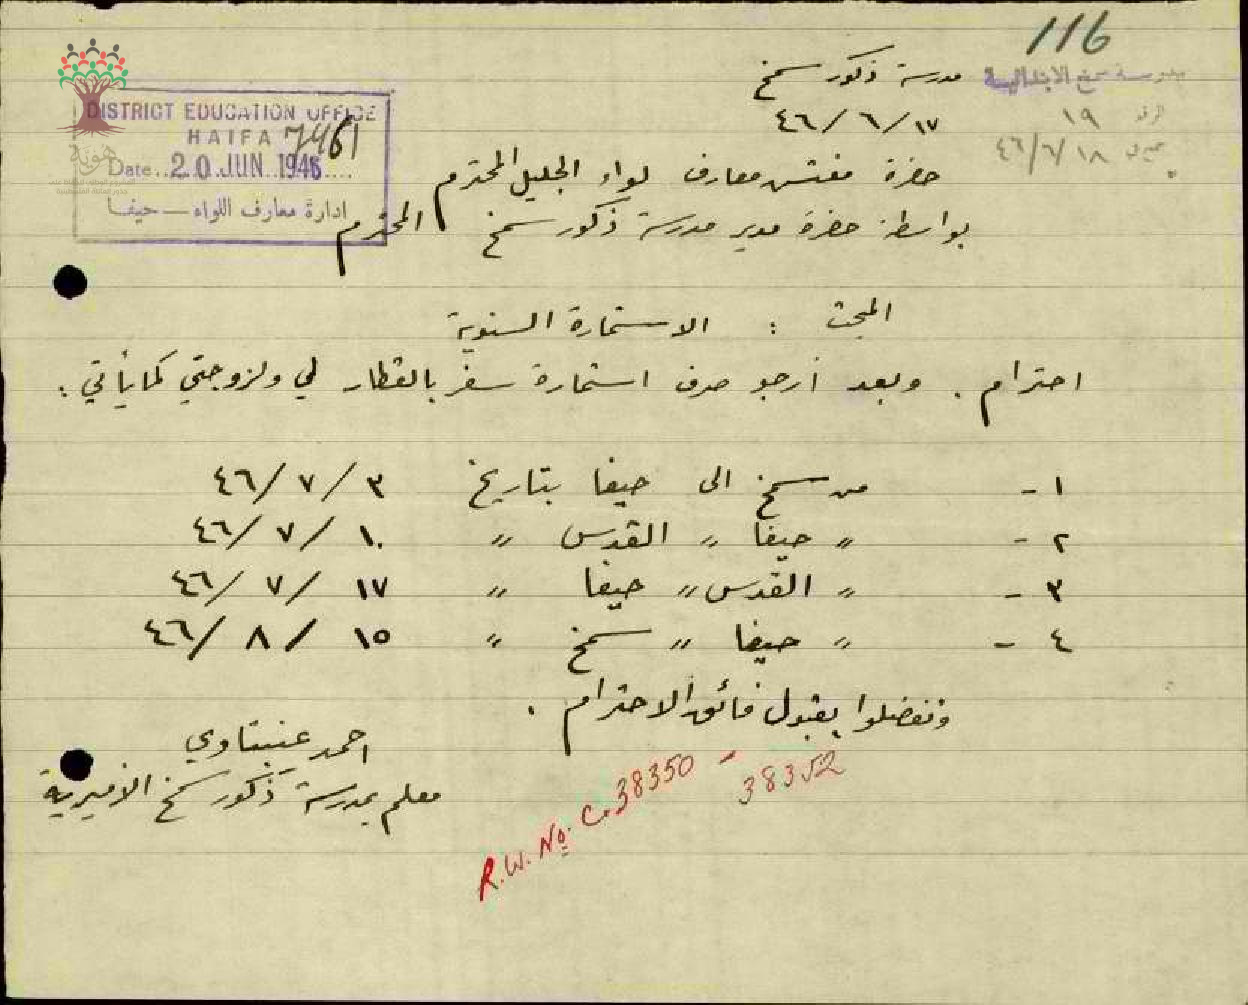 116
مدرسة سمخ الابتدائية
الرقم ١٩
٤٦/٦/١٨
مدرسة ذكور سمخ
٤٦/٦/١٧
DISTRICT EDUCATION OFFICE
HAIFA 7461
Date.. 20 JUN 1946 ....
ادارة معارف اللواء — حيفا
هوية
حضرة مفتش معارف لواء الجليل المحترم
بواسطة حضرة مدير مدرسة ذكور سمخ المحترم
المبحث : الاستمارة السنوية
احترام . وبعد أرجو صرف استمارة سفر بالقطار لي ولزوجتي كما يأتي :
١- من سمخ الى حيفا بتاريخ ٤٦/٧/٣
٢- " حيفا " القدس " ٤٦/٧/١٠
٣- " القدس " حيفا " ٤٦/٧/١٧
٤- " حيفا " سمخ " ٤٦/٨/١٥
وتفضلوا بقبول فائق الاحترام .
احمد عنبتاوي
معلم بمدرسة ذكور سمخ الأميرية
R.W. No. C.38350 - 38352